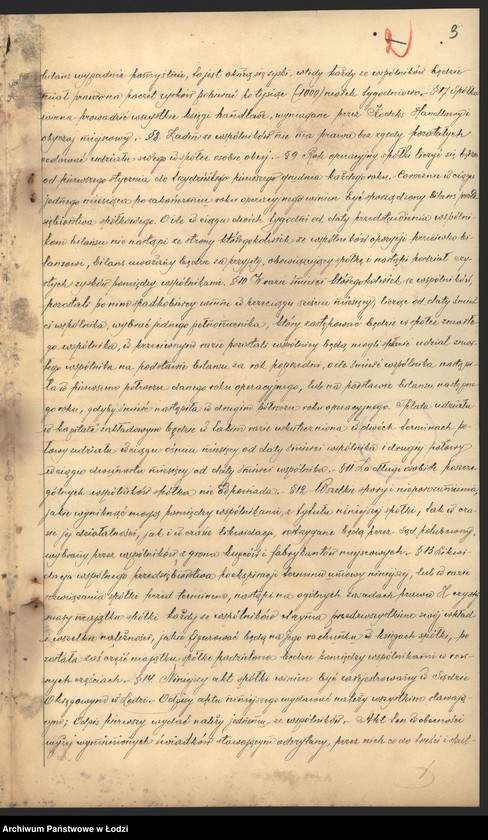 2
3
bilans wypadnie pomyślnie, to jest okażą się zyski, wtedy każdy ze wspólników będzie
miał prawo na poczet zysków pobierać po tysiąc (1000) marek tygodniowo. § 7 Spółka
winna prowadzić wszystkie księgi handlowe, wymagane przez Kodeks Handlowy i
obyczaj miejscowy. § 8 Żaden ze wspólników nie ma prawa bez zgody pozostałych
odstąpić udziału swego w spółce osobie obcej. § 9 Rok operacyjny spółki liczyć się będzie
od pierwszego stycznia do trzydziestego pierwszego grudnia każdego roku. Corocznie w ciągu
jednego miesiąca po zakończeniu roku operacyjnego winien być sporządzony bilans przed-
siębiorstwa spółkowego. O ile w ciągu dwóch tygodni od daty przedstawienia wspólni-
kom bilansu nie nastąpi ze strony któregokolwiek ze wspólników opozycji przeciwko bi-
lansowi, bilans uważany będzie za przyjęty, obowiązujący spółkę i nastąpi podział czy-
stych zysków pomiędzy wspólnikami. § 10 W razie śmierci któregokolwiek ze wspólników,
pozostali po nim spadkobiercy winni w przeciągu sześciu miesięcy, licząc od daty śmier-
ci wspólnika, wybrać jednego pełnomocnika, który zastępować będzie w spółce zmarłe-
go wspólnika, w przeciwnym razie pozostali wspólnicy będą mogli spłacić udział zmar-
łego wspólnika na podstawie bilansu za rok poprzedni, o ile śmierć wspólnika nastąpi-
ła w pierwszem półroczu danego roku operacyjnego, lub na podstawie bilansu następne-
go roku, gdyby śmierć nastąpiła w drugim półroczu roku operacyjnego. Spłata udziału
w kapitale zakładowym będzie w takim razie uskuteczniona w dwóch terminach: po-
łowy udziału w ciągu ośmiu miesięcy od daty śmierci wspólnika i drugiej połowy
w ciągu dwunastu miesięcy od daty śmierci wspólnika. § 11 Za długi osobiste poszcze-
gólnych wspólników spółka nie odpowiada. § 12 Wszelkie spory i nieporozumienia,
jakie wyniknąć mogą pomiędzy wspólnikami, z tytułu niniejszej spółki, tak w cza-
sie jej działalności, jak i w czasie likwidacji, rozstrzygane będą przez Sąd polubowny,
wybrany przez wspólników z grona kupców i fabrykantów miejscowych. § 13 Likwi-
dacja wspólnego przedsiębiorstwa po ekspiracji terminu umowy niniejszej, lub w razie
rozwiązania spółki przed terminem, nastąpi na ogólnych zasadach prawa. Z czystej
masy majątku spółki każdy ze wspólników otrzyma przedewszystkiem swój wkład
i wszelkie należności, jakie figurować będą na jego rachunku w księgach spółki, po-
została zaś część majątku spółki podzielona będzie pomiędzy wspólnikami w rów-
nych częściach. § 14 Niniejszy akt spółki winien być zarejestrowany w Sądzie
Okręgowym w Łodzi. Odpisy aktu niniejszego wydawać należy wszystkim stawają-
cym; Odpis pierwszy wydać należy jednemu ze wspólników. Akt ten w obecności
wyżej wymienionych świadków stawającym odczytany, przez nich co do treści i skut-
Archiwum Państwowe w Łodzi